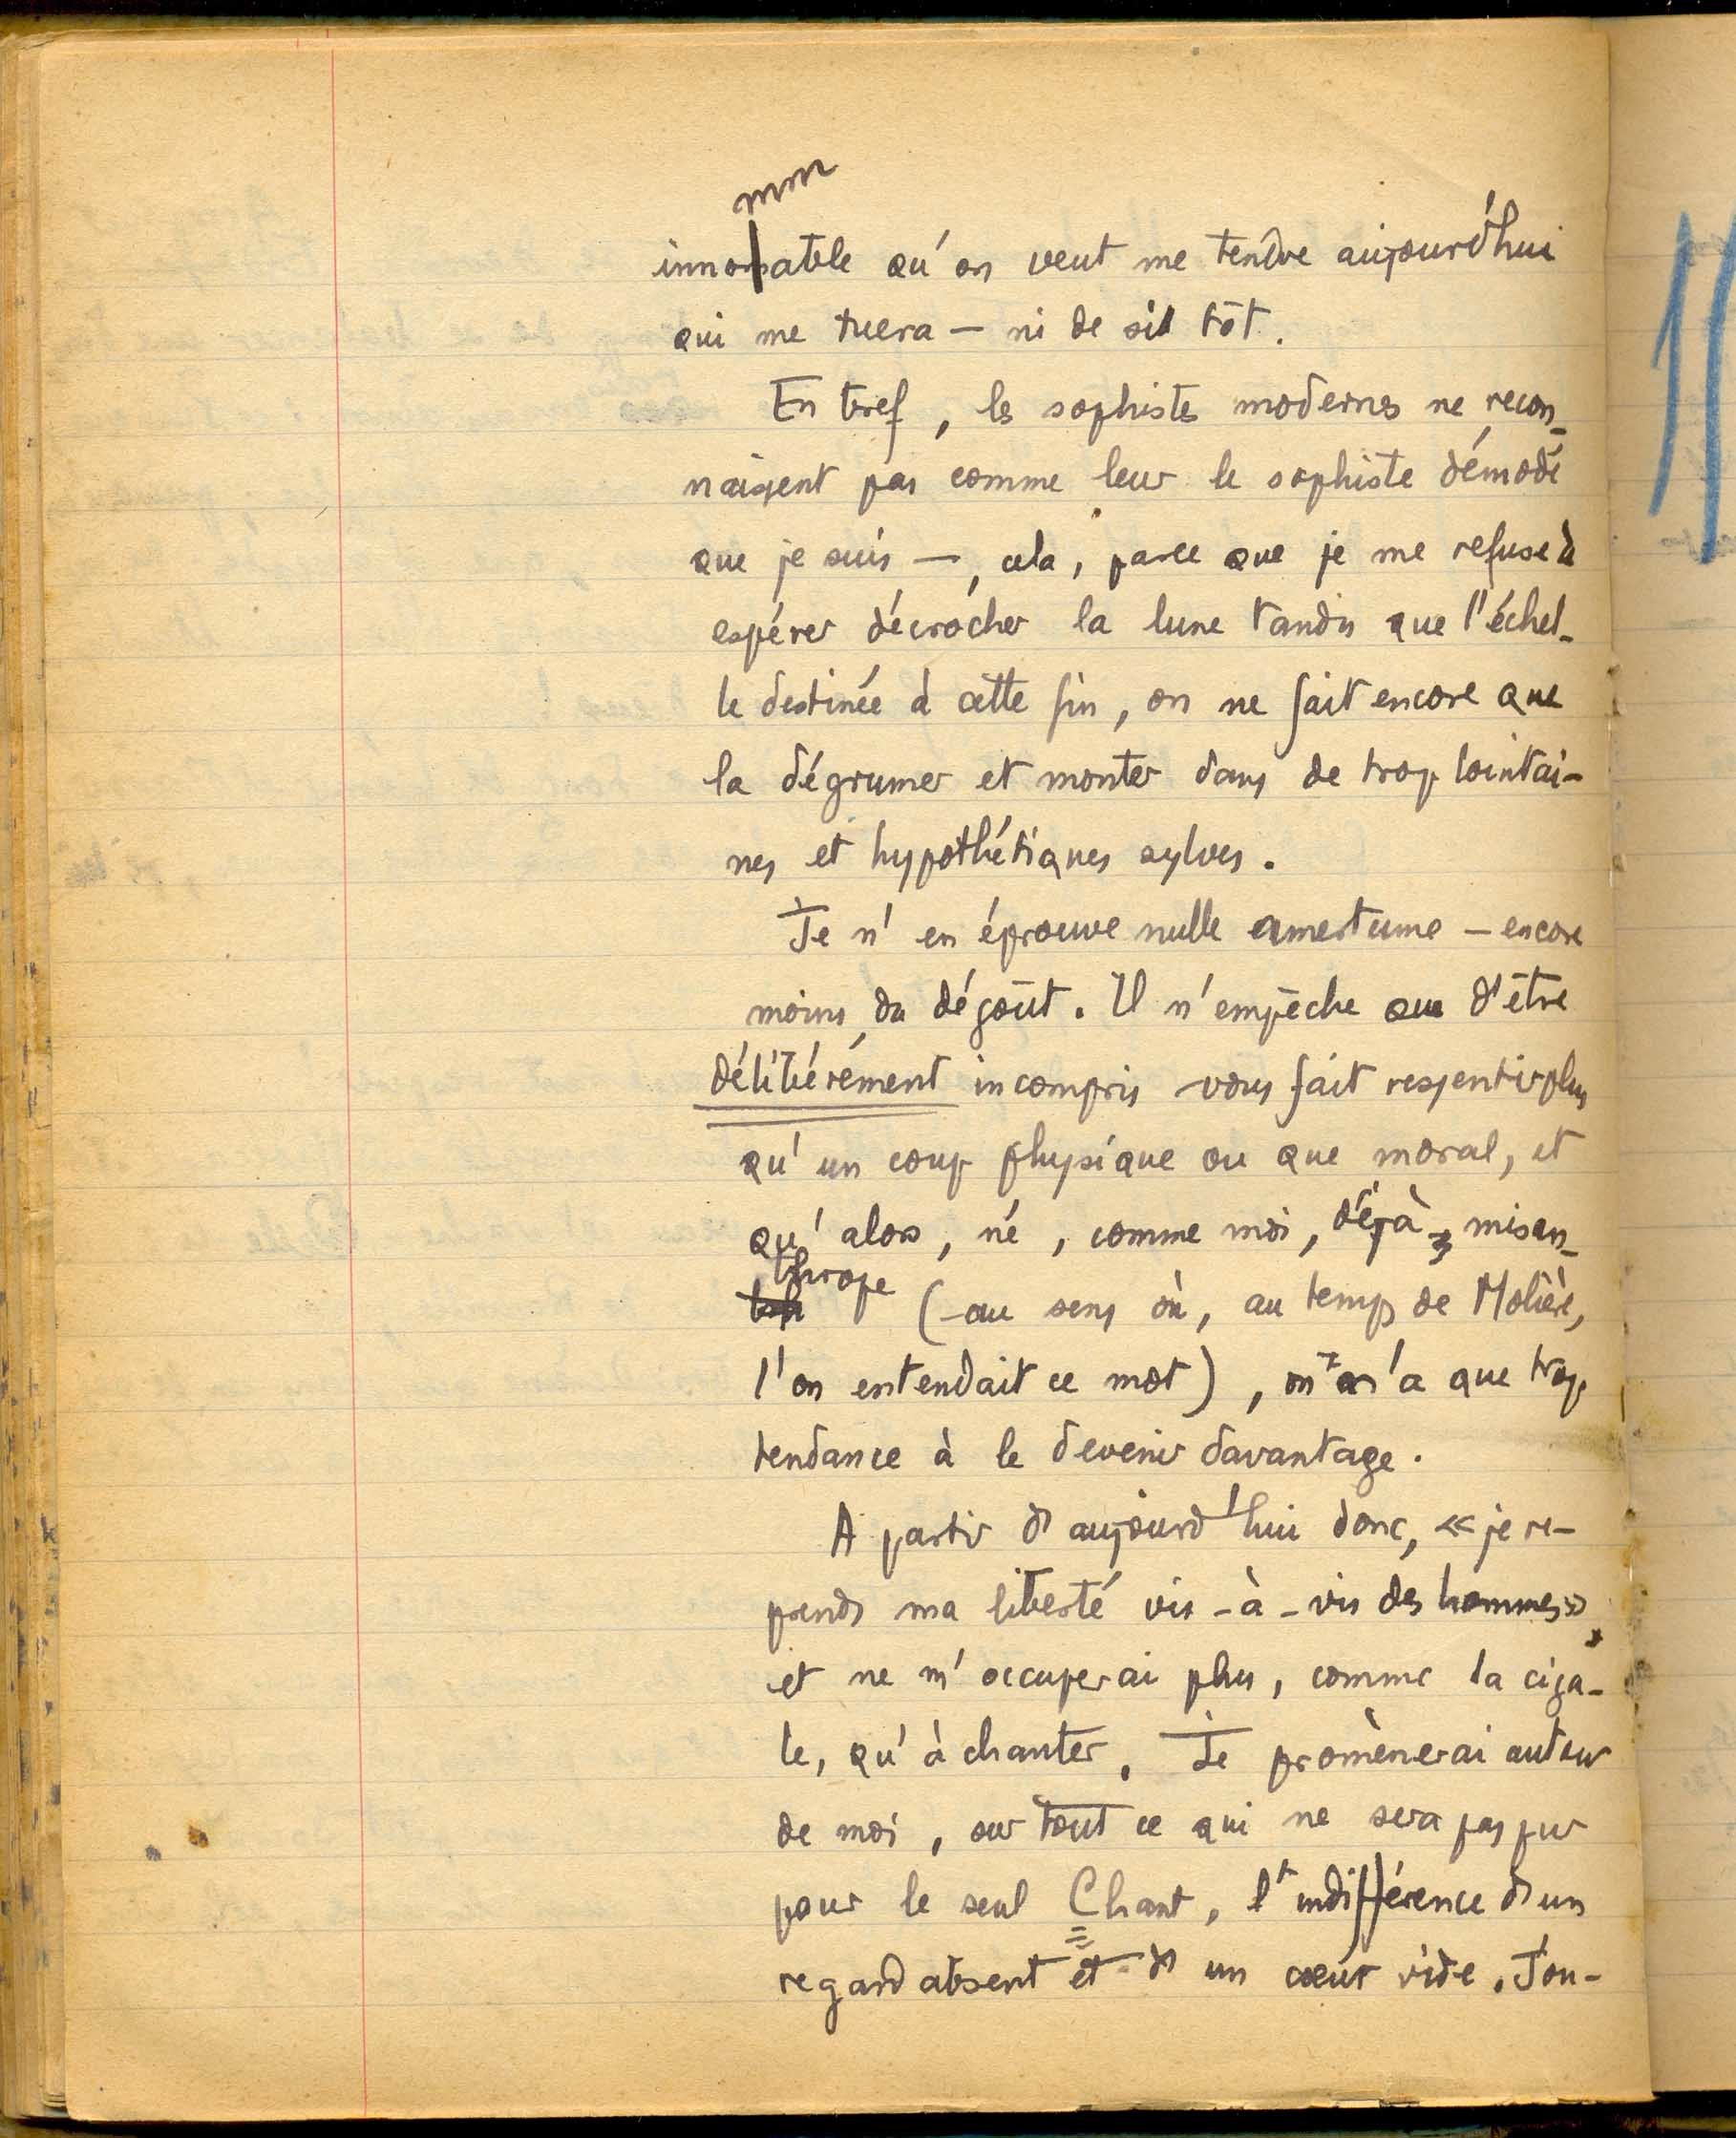 mm
innomable qu'on veut me tendre aujourd'hui
qui me tuera — ni de sil tôt.
En bref, les sophistes modernes ne recon-
naissent pas comme leur le sophiste démodé
que je suis —, cela, parce que je me refuse à
espérer décrocher la lune tandis que l'échel-
le destinée à cette fin, on ne fait encore que
la dégrumer et monter dans de trop lointai-
nes et hypothétiques sylves.
Je n'en éprouve nulle amertume — encore
moins du dégoût. Il n'empêche que d'être
délibérément incompris vous fait ressentir plus
qu'un coup physique ou que moral, et
qu'alors, né, comme moi, déjà misan-
thrope (au sens où, au temps de Molière,
l'on entendait ce mot), on n'a que trop
tendance à le devenir davantage.
A partir d'aujourd'hui donc, « je re-
prends ma liberté vis-à-vis des hommes »,
et ne m'occuperai plus, comme la ciga-
le, qu'à chanter. Je promènerai autour
de moi, sur tout ce qui ne sera pas pur
pour le seul Chant, l'indifférence d'un
regard absent et d'un cœur vide. Jou-